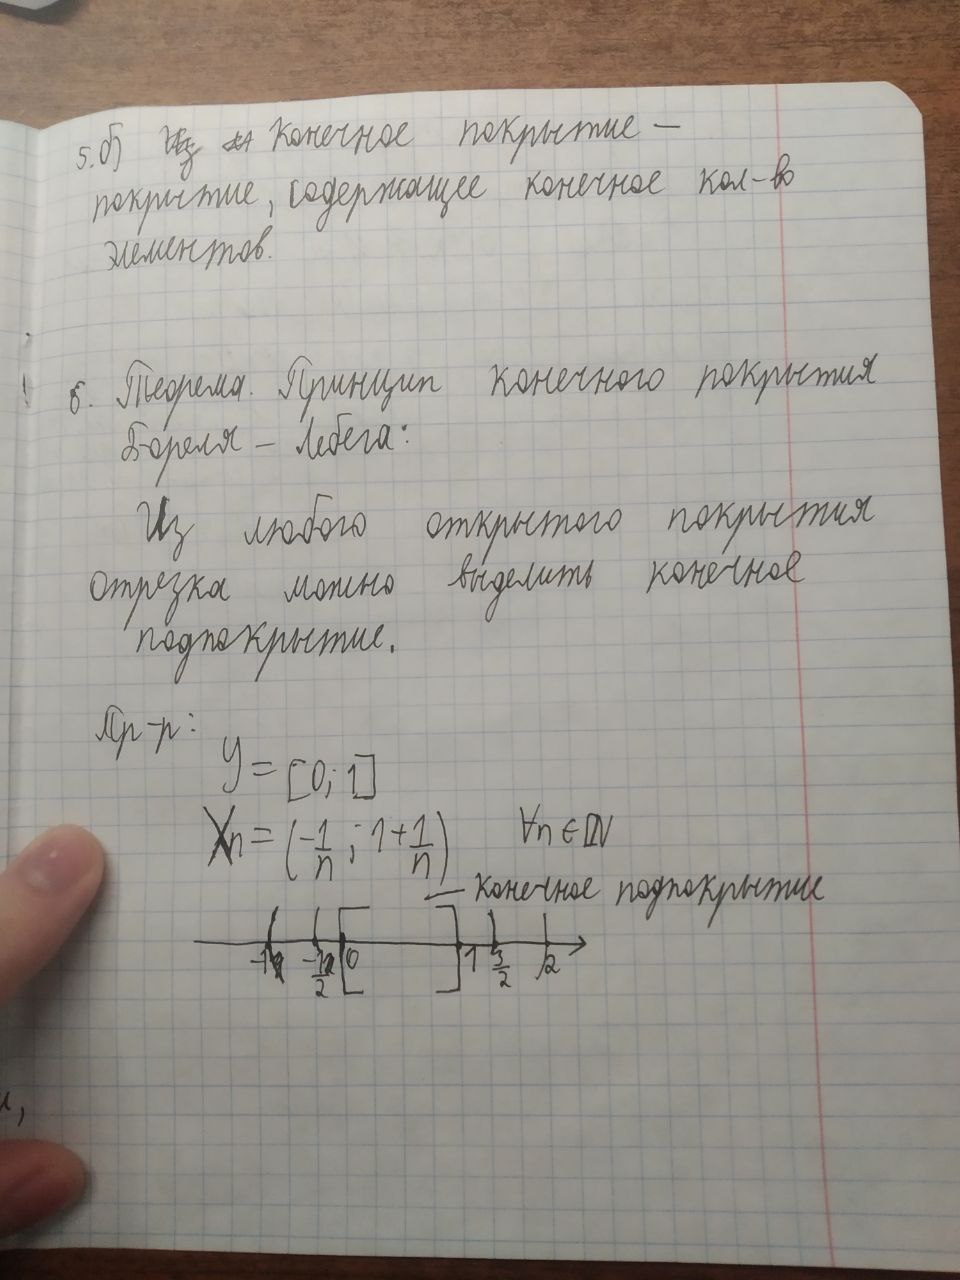 5.б) Из Конечное покрытие –
покрытие, содержащее конечное кол-во
элементов.
6. Теорема. Принцип конечного покрытия
Бореля – Лебега:
Из любого открытого покрытия
отрезка можно выделить конечное
подпокрытие.
Пр-р:
Y = [0; 1]
Xn = (-1/n ; 1+1/n) ∀n ∈ ℕ
— конечное подпокрытие
-1 -1/2 0 1 3/2 2